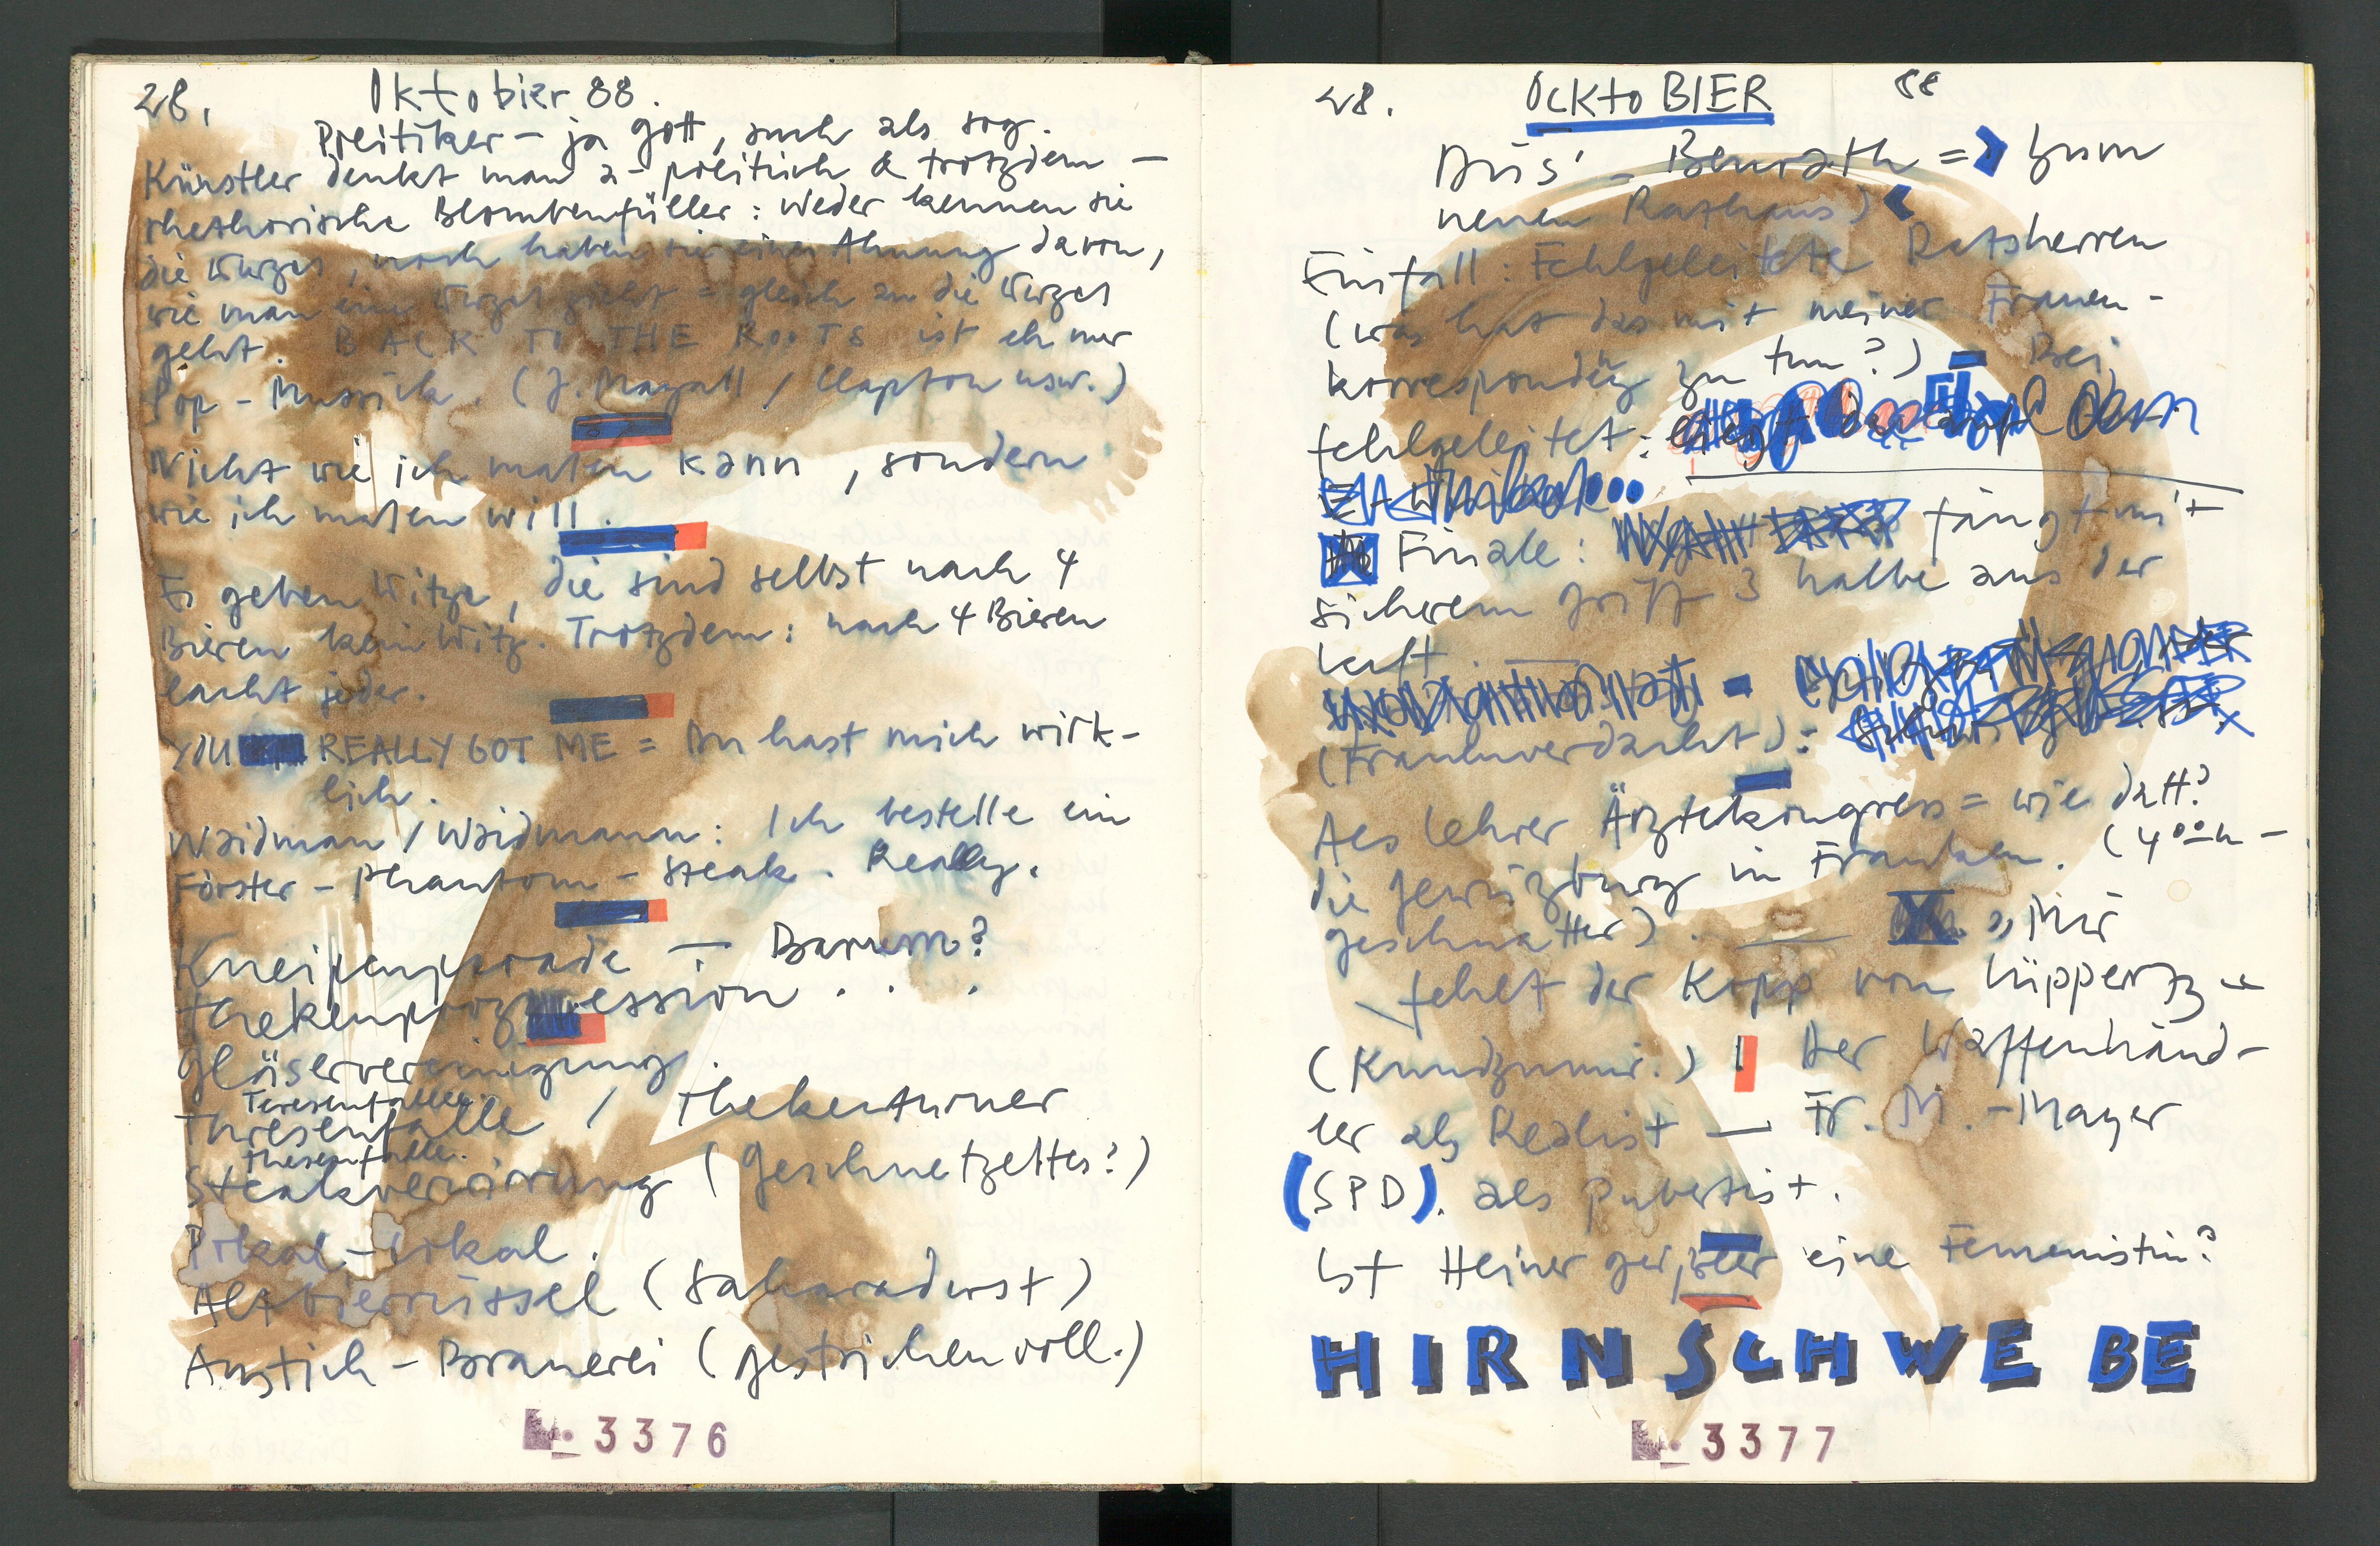 28. Oktobier 88.
Politiker - ja gott, auch als sog.
Künstler denkt man a-politisch & trotzdem -
rhethorische Blombenfüller: Weder kennen sie
die Wurzel, noch haben sie eine Ahnung davon,
wie man eine Wurzel zieht = gleich an die Wurzel
geht. BACK TO THE ROOTS ist eh nur
Pop-Mussick. (J. Mayall / Clapton usw.)
Nicht wie ich malen kann, sondern
wie ich malen will.
Es geben Witze, die sind selbst nach 4
Bieren kein Witz. Trotzdem: nach 4 Bieren
lacht jeder.
YOU REALLY GOT ME = Du hast mich wirk-
lich.
Waidman / Waidmann: Ich bestelle ein
Förster - Phantom - Steak. Really.
Kneipenparade - Barum?
Thekenprozession . . .
Gläservereinigung.
Teresenfalle
Thresenfalle / Thekenturner
Thesenfalle.
Steakverirrung (Geschnetzeltes?)
Pokal-Lokal.
Altbierrüssel (Saharadurst)
Anstich-Brauerei (gestrichen voll.)
No. 3376
28. OCKtoBIER 88
Düs' - Benrath => Zum
neuen Rathaus)
Einfall: Fehlgeleitete Ratsherren
(was hat das mit meiner Frauen-
korrespondenz zu tun?) - Bei
fehlgeleitet:
Finale: fängt mit
sicherem Griff 3 halbe aus der
Luft.
(Frauenverdacht):
Als Lehrer Ärztekongress = wie datt?
die Gewürzburg in Franken. (4 00 h -
geschnatter). "Mir
fehlt der Kopp von Lüppertz"
(Kundzumir.) Der Waffenhänd-
ler als Realist - Fr. M. - Mayer
(SPD). als Pubertist.
Ist Heiner Geißler eine Femenistin?
HIRNSCHWEBE
No. 3377